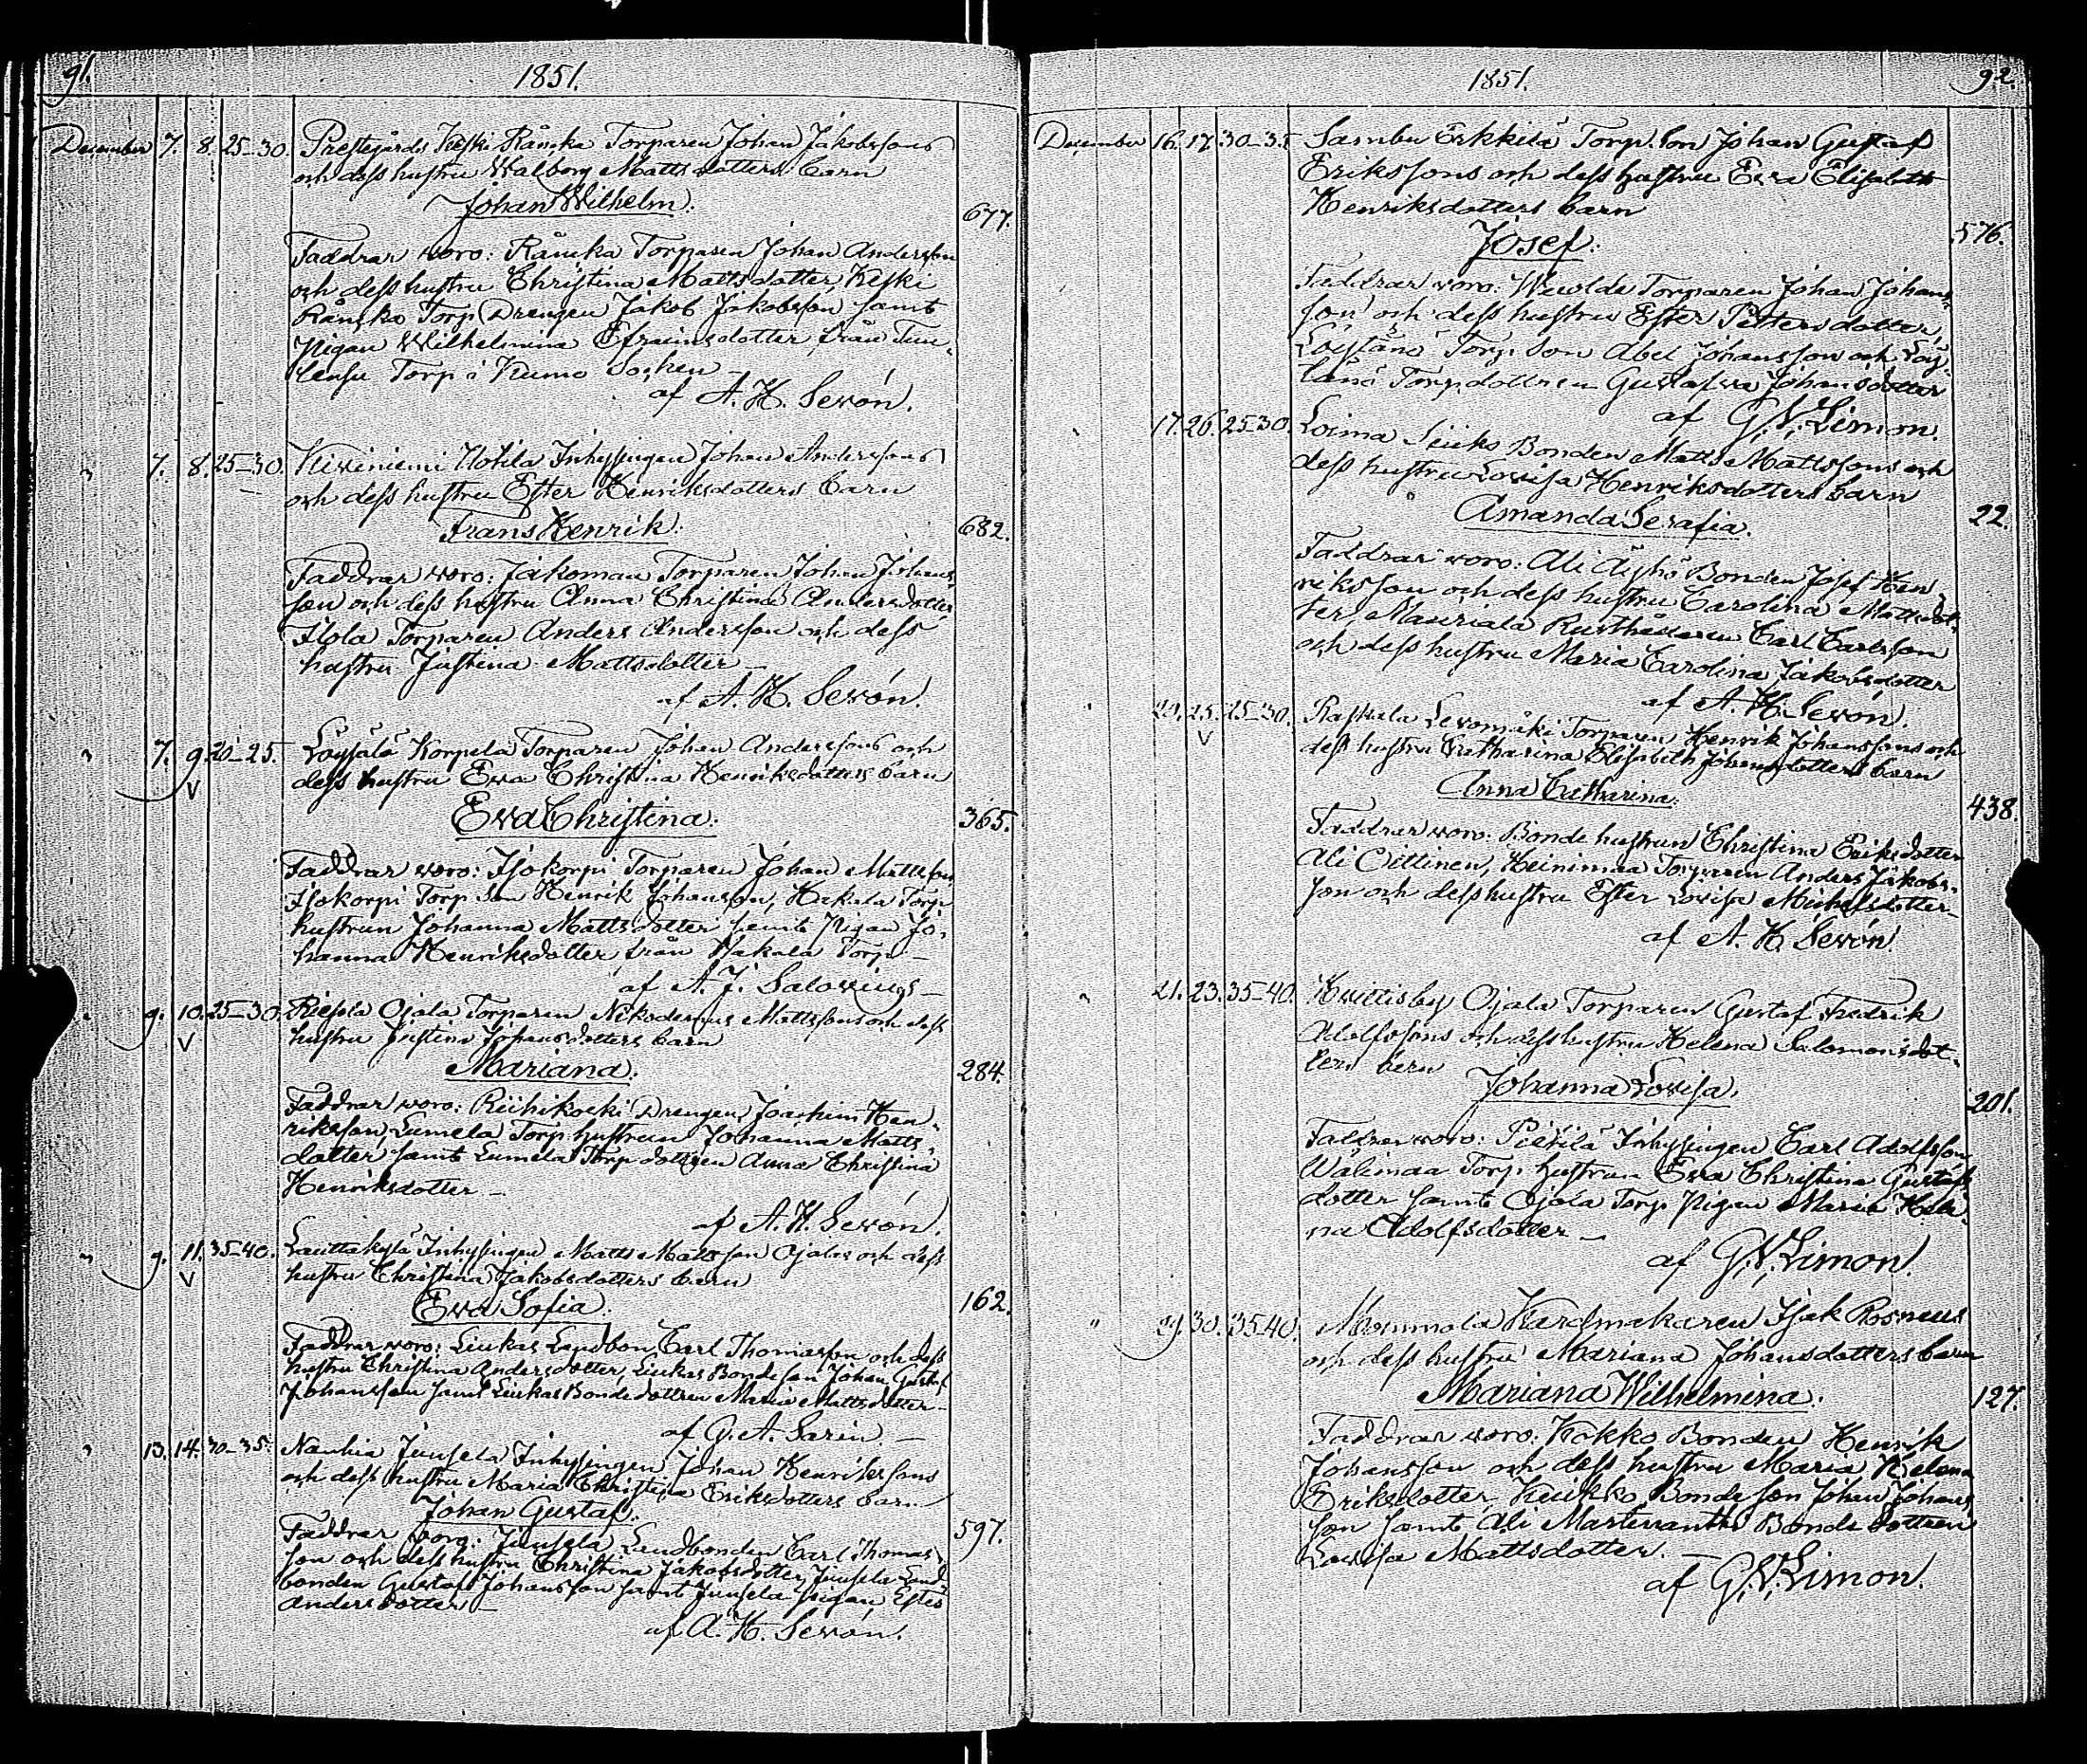 91.
1851.
December 7. 8. 25-30. Prestegårds Keski Råncka Torparen Johan Jakobssons
och dess hustru Walborg Matts dotters barn
Johan Wilhelm.
677.
Faddrar woro: Råncka Torparen Johan Andersson
och dess hustru Christina Mattsdotter, Keski
Råncka Torp Drengen Jakob Jakobsson samt
Pigan Wilhelmina Efraimsdotter från
Torp i Kumo Socken
af A. H. Sewón.
" 7. 8. 25-30. Kiviniemi Uotila Inhysingen Johan Anderssons
och dess hustru Ester Henriksdotters barn
Frans Henrik.
682.
Faddrar woro: Jakoman Torparen Johan Johans
son och dess hustru Anna Christina Andersdotter
Torparen Anders Andersson och dess
hustru Justina Mattsdotter
af A. H. Sewón.
" 7. 9. 20-25. Korpela Torparen Johan Anderssons och
dess hustru Ewa Christina Henriksdotters barn
Ewa Christina.
365.
Faddrar woro: Isokorpi Torparen Johan Mattsson
Isokorpi Torp Son Henrik Johansson, Hakala Torp
hustrun Johanna Matts dotter samt Pigan Jo-
hanna Henriksdotter från Hakala Torp
af A. J. Salovius
" 9. 10. 25-30. Ojala Torparen Nikodemus Mattssons och dess
hustru Justina Johansdotters barn
Mariana.
284.
Faddrar woro: Riihikoski Drengen Joachim Hen-
riksson, Lumela Torp hustrun Johanna Matts
dotter samt Lumela Torp dottren Anna Christina
Henriksdotter
af A. H. Sewón.
" 9. 11. 35-40. Lauttakylä Inhysingen Matts Mattsson Ojalas och dess
hustru Christina Jakobsdotters barn
Ewa Sofia.
162.
Faddrar woro: Liukas Landbon Carl Thomasson och dess
hustru Christina Andersdotter, Liukas Bonde son Johan Gustaf
Johansson samt Liukas Bonde dottren Maria Mattsdotter
af G. A. Sarin.
" 13. 14. 30-35. Nanhia Junsela Inhysingen Johan Henrikssons
och dess hustru Maria Christina Eriksdotters barn
Johan Gustaf.
597.
Faddrar woro: Junsela Landbonden Carl Thomas-
son och dess hustru Christina Jakobsdotter, Junsela Land
bonden Gustaf Johansson samt Junsela pigan Ester
Andersdotter
af A. H. Sewón.
1851.
92.
December 16. 17. 30-35. Sambu Erkkilä Torp. Son Johan Gustaf
Erikssons och dess hustru Ewa Elisabeth
Henriksdotters barn
Josef.
576.
Faddrar woro: Torparen Johan Johans
son och dess hustru Ester Pettersdotter,
Torp Son Abel Johansson och
Torpdottren Gustafwa Johansdotter
af G. W. Limon.
" 17. 26. 25-30. Loima Seuko Bonden Matts Mattssons och
dess hustru Lovisa Henriksdotters barn
Amanda Serafia.
22.
Faddrar woro: Ali Bonden Josef Hen-
riksson och dess hustru Carolina Mattsdot-
ter, Mauriala Rusthållaren Carl Carlsson
och dess hustru Maria Carolina Jakobsdotter
af A. H. Sewón.
" 20. 25. 25-30. Raskala Levonmäki Torparen Henrik Johanssons och
dess hustru Catharina Elisabeth Johansdotters barn
Anna Catharina.
438.
Faddrar woro: Bonde hustrun Christina Eriksdotter
Ali Oittinen, Heinimaa Torparen Anders Jakobs-
son och dess hustru Ester Lovisa Michelsdotter
af A. H. Sewón
" 21. 23. 35-40. Huittisby Ojala Torparen Gustaf Fredrik
Adolfssons och dess hustru Helena Salomonsdot-
ters barn
Johanna Lovisa.
201.
Faddrar woro: Inhysingen Carl Adolfsson
Wälimaa Torp. hustrun Ewa Christina Gustafs
dotter samt Ojala Torp. Pigan Maria Hele-
na Adolfsdotter
af G. W. Limon.
" 29. 30. 35-40. Mommola Kardmakaren Isak Rosneus
och dess hustru Mariana Johansdotters barn
Mariana Wilhelmina.
127.
Faddrar woro: Kokko Bonden Henrik
Johansson och dess hustru Maria Helena
Eriksdotter, Bonde son Johan Johans
son samt Ali Bonde dottren
Lovisa Mattsdotter.
af G. W. Limon.